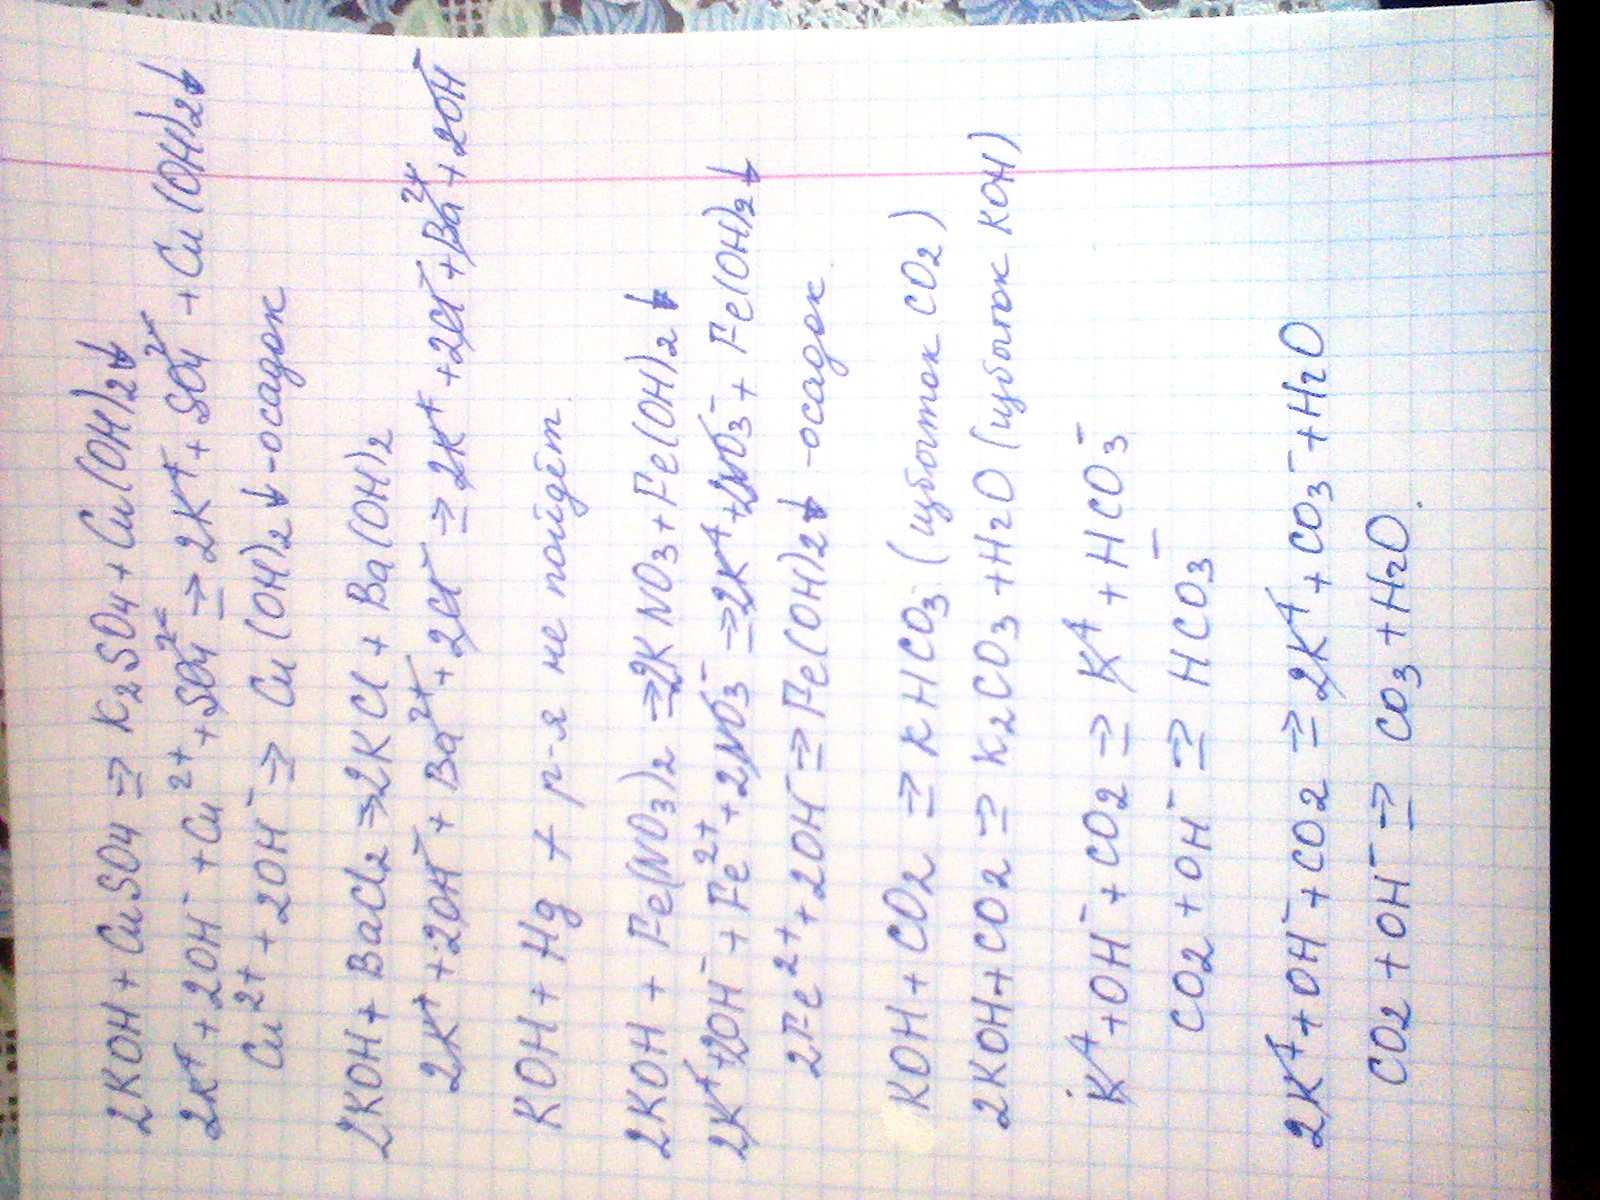 2KOH + CuSO4 => K2SO4 + Cu(OH)2↓
2K⁺ + 2OH⁻ + Cu²⁺ + SO4²⁻ => 2K⁺ + SO4²⁻ + Cu(OH)2↓
Cu²⁺ + 2OH⁻ => Cu(OH)2↓ - осадок
2KOH + BaCl2 => 2KCl + Ba(OH)2
2K⁺ + 2OH⁻ + Ba²⁺ + 2Cl⁻ => 2K⁺ + 2Cl⁻ + Ba²⁺ + 2OH⁻
KOH + Hg ≠ р-я не пойдёт.
2KOH + Fe(NO3)2 => 2KNO3 + Fe(OH)2↓
2K⁺ + 2OH⁻ + Fe²⁺ + 2NO3⁻ => 2K⁺ + 2NO3⁻ + Fe(OH)2↓
2Fe²⁺ + 2OH⁻ => Fe(OH)2↓ - осадок.
KOH + CO2 => KHCO3 (избыток CO2)
2KOH + CO2 => K2CO3 + H2O (избыток KOH)
K⁺ + OH⁻ + CO2 => K⁺ + HCO3⁻
CO2 + OH⁻ => HCO3⁻
2K⁺ + OH⁻ + CO2 => 2K⁺ + CO3⁻ + H2O
CO2 + OH⁻ => CO3 + H2O.